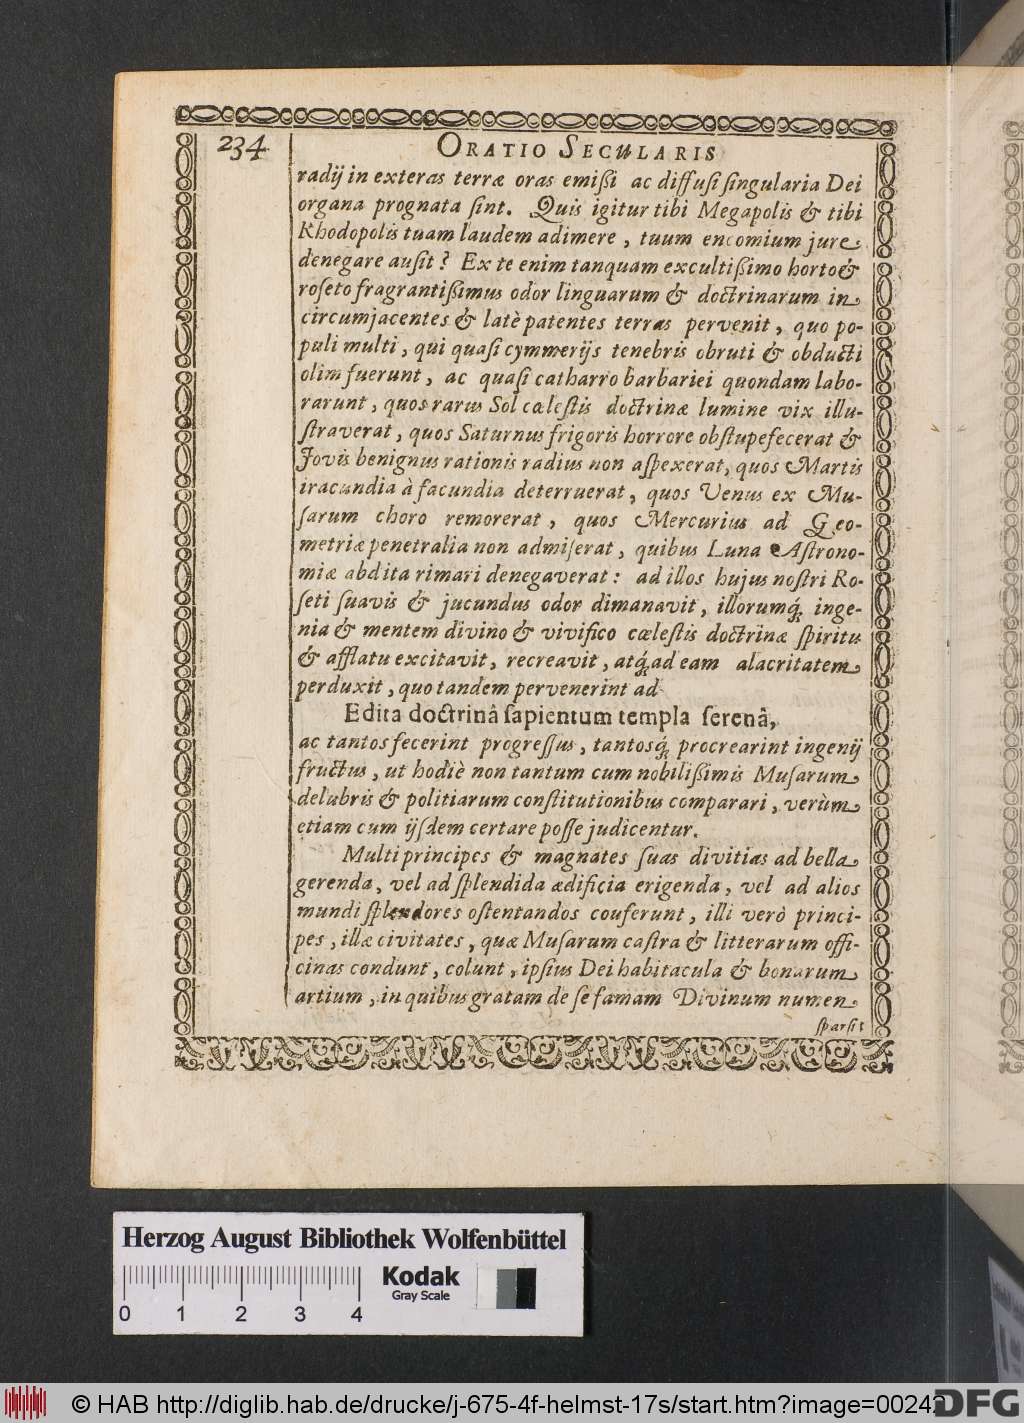 234
ORATIO SECULARIS
radij in exteras terræ oras emißi ac diffuſi ſingularia Dei
organa prognata ſint. Quis igitur tibi Megapolis & tibi
Rhodopolis tuam laudem adimere, tuum encomium jure
denegare auſit? Ex te enim tanquam excultißimo horto &
roſeto fragrantißimus odor linguarum & doctrinarum in
circumjacentes & latè patentes terras pervenit, quo po-
puli multi, qui quaſi cymmerijs tenebris obruti & obducti
olim fuerunt, ac quaſi catharro barbariei quondam labo-
rarunt, quos rarus Sol cœleſtis doctrinæ lumine vix illu-
ſtraverat, quos Saturnus frigoris horrore obſtupefecerat &
Jovis benignus rationis radius non aſpexerat, quos Martis
iracundia à facundia deterruerat, quos Venus ex Mu-
ſarum choro remorerat, quos Mercurius ad Geo-
metriæ penetralia non admiſerat, quibus Luna Aſtrono-
miæ abdita rimari denegaverat: ad illos hujus noſtri Ro-
ſeti ſuavis & jucundus odor dimanavit, illorumq́; inge-
nia & mentem divino & vivifico cœleſtis doctrinæ ſpiritu
& afflatu excitavit, recreavit, atq́; ad eam alacritatem
perduxit, quo tandem pervenerint ad
Edita doctrinâ ſapientum templa ſerenâ,
ac tantos fecerint progreſſus, tantosq́; procrearint ingenij
fructus, ut hodiè non tantum cum nobilißimis Muſarum
delubris & politiarum conſtitutionibus comparari, verùm
etiam cum ijſdem certare poſſe judicentur.
Multi principes & magnates ſuas divitias ad bella
gerenda, vel ad ſplendida ædificia erigenda, vel ad alios
mundi ſplendores oſtentandos couferunt, illi verò princi-
pes, illæ civitates, quæ Muſarum caſtra & litterarum offi-
cinas condunt, colunt, ipſius Dei habitacula & bonarum
artium, in quibus gratam de ſe famam Divinum numen
ſparſit
Herzog August Bibliothek Wolfenbüttel
Kodak
Gray Scale
0 1 2 3 4
© HAB http://diglib.hab.de/drucke/j-675-4f-helmst-17s/start.htm?image=00242
DFG